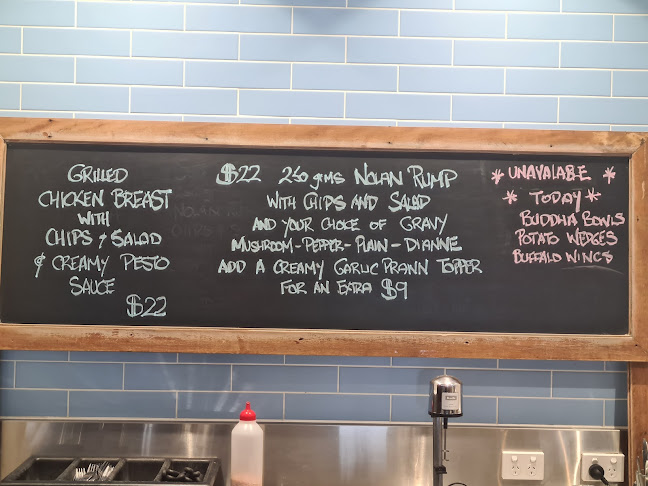 GRILLED
CHICKEN BREAST
WITH
CHIPS & SALAD
& CREAMY PESTO
SAUCE
$22
$22 250 gms NOLAN RUMP
WITH CHIPS AND SALAD
AND YOUR CHOICE OF GRAVY
MUSHROOM - PEPPER - PLAIN - DIANNE
ADD A CREAMY GARLIC PRAWN TOPPER
FOR AN EXTRA $9
* UNAVALABE *
* TODAY *
BUDDHA BOWLS
POTATO WEDGES
BUFFALO WINGS